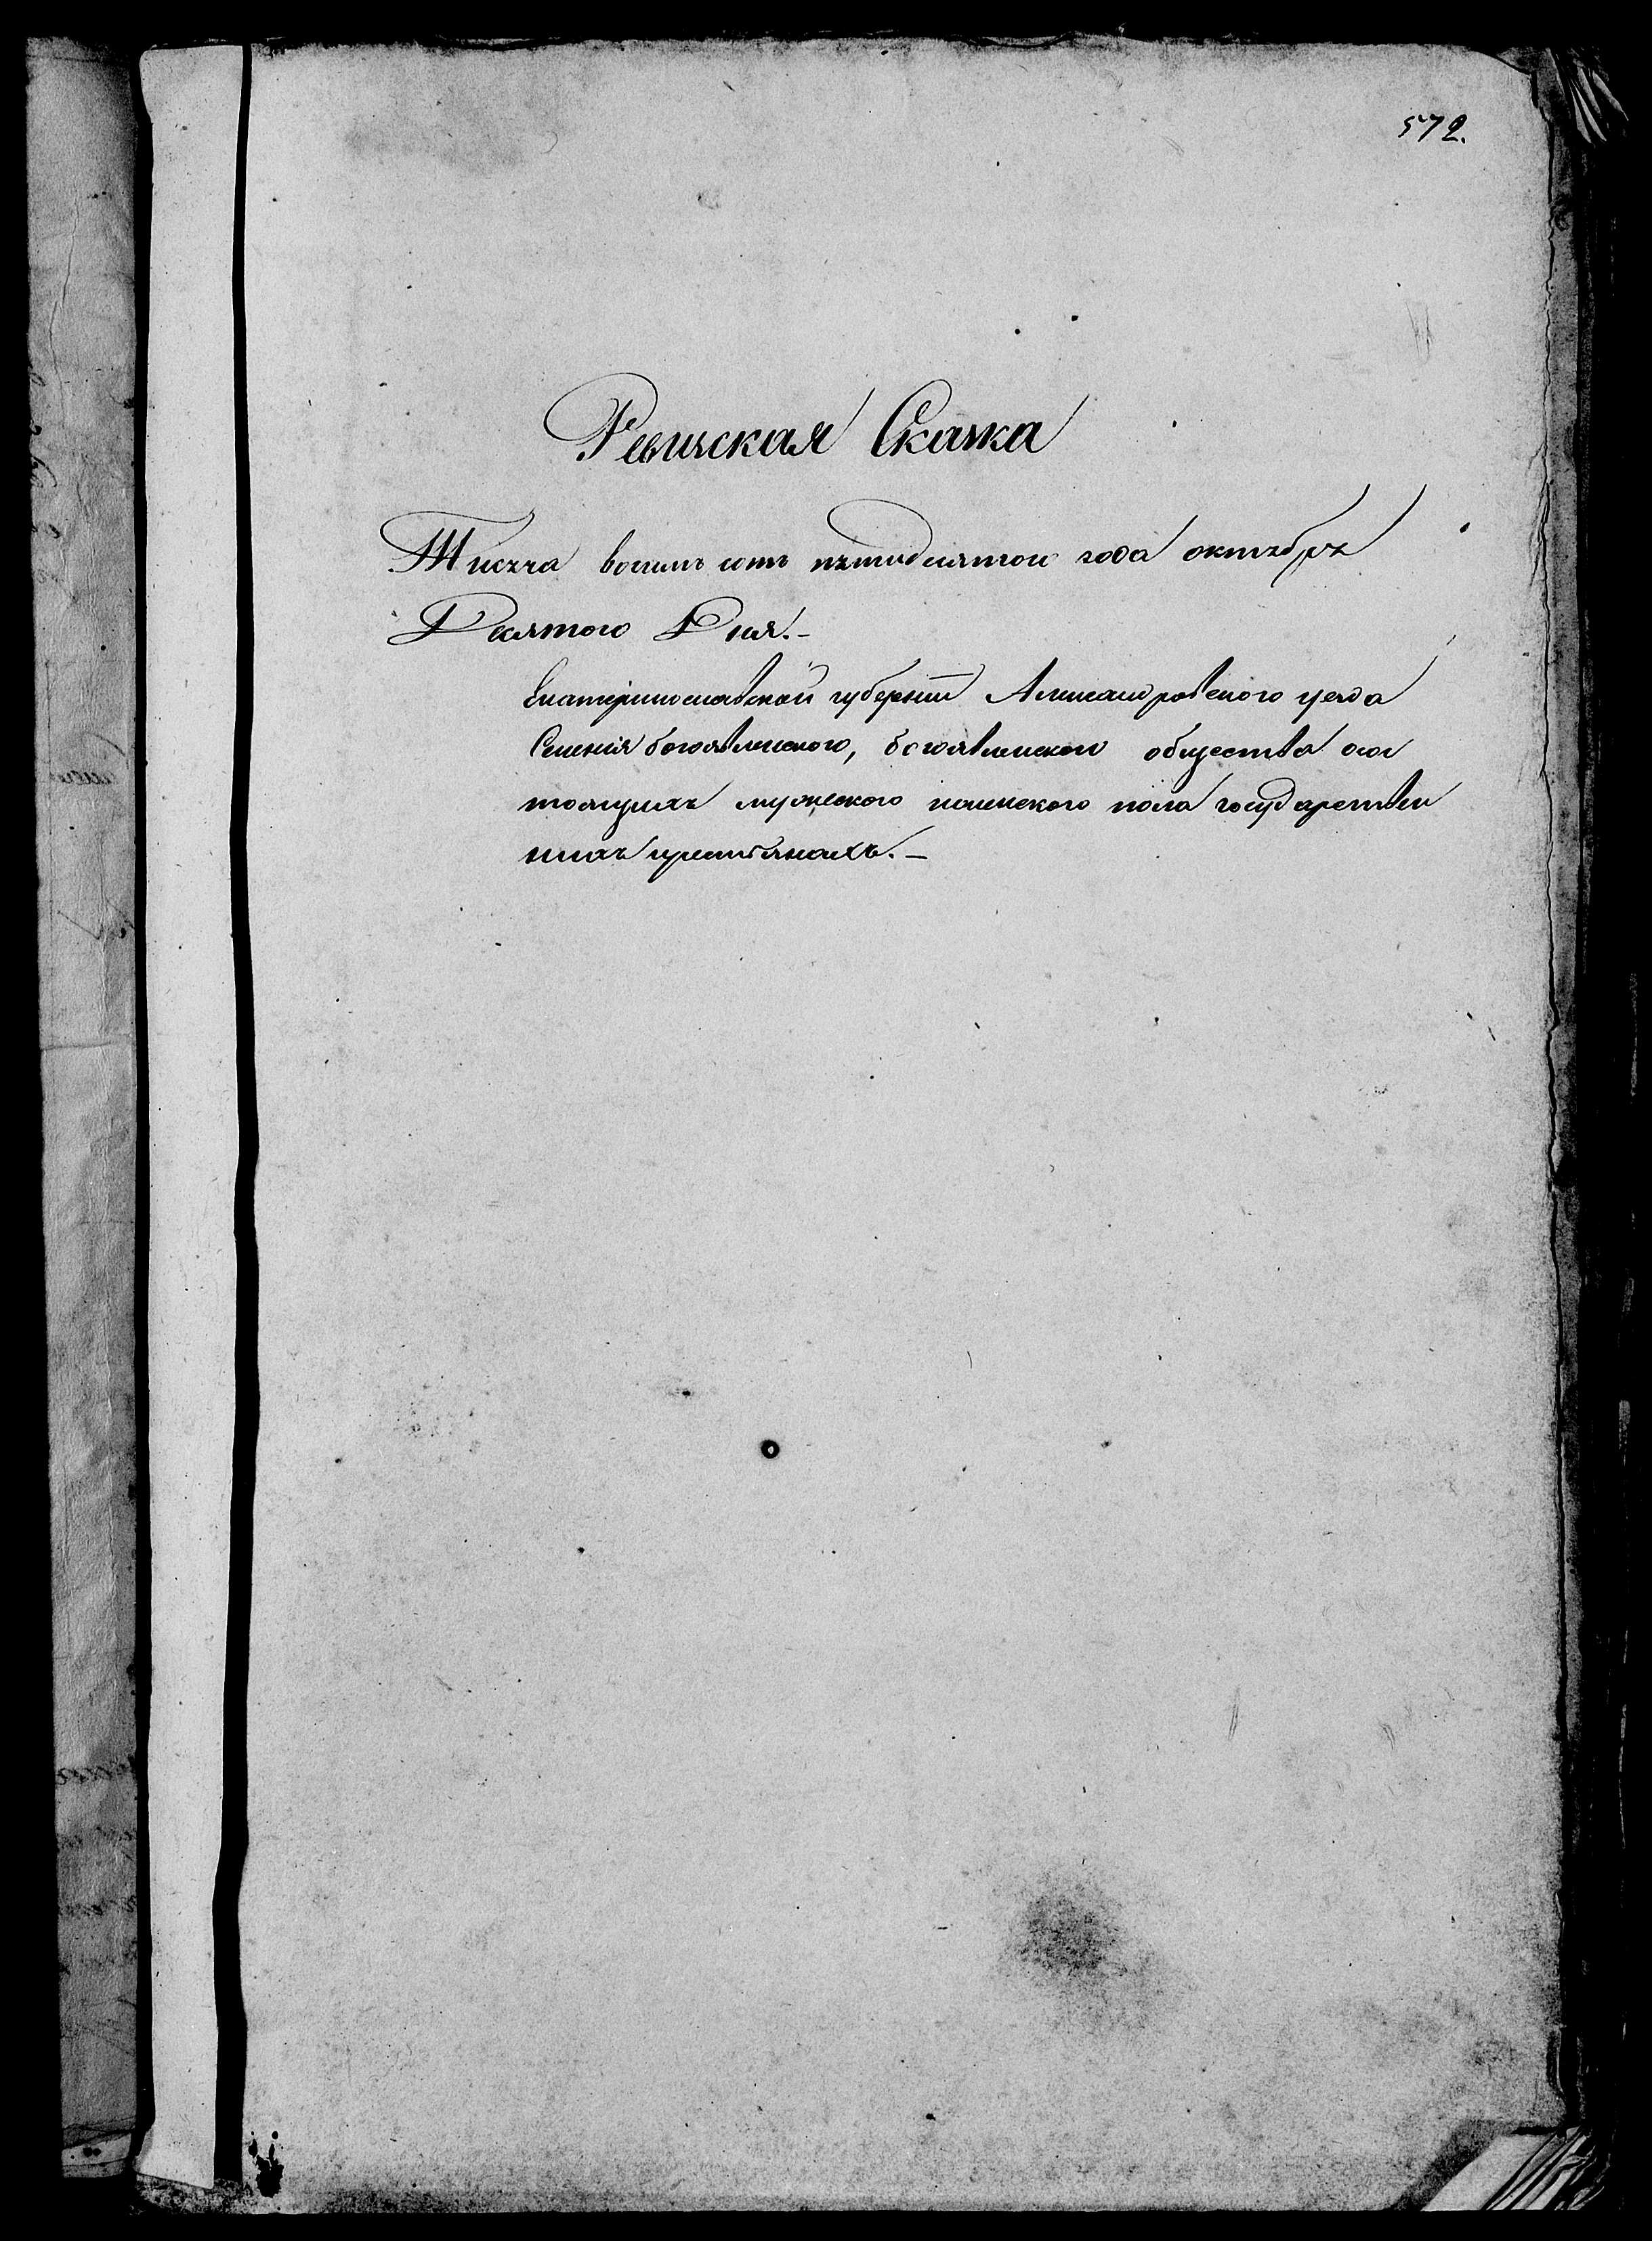 572.
Ревиская Сказка
Тисяча восемь сотъ пятидесятого года октября
Десятого Дня.-
Екатеринославской губерніи Александровского уезда
Селенія богоявленского, богоявленского общества осос
тоящихъ мужеского иженского пола государствен
нихъ крестянахъ.-